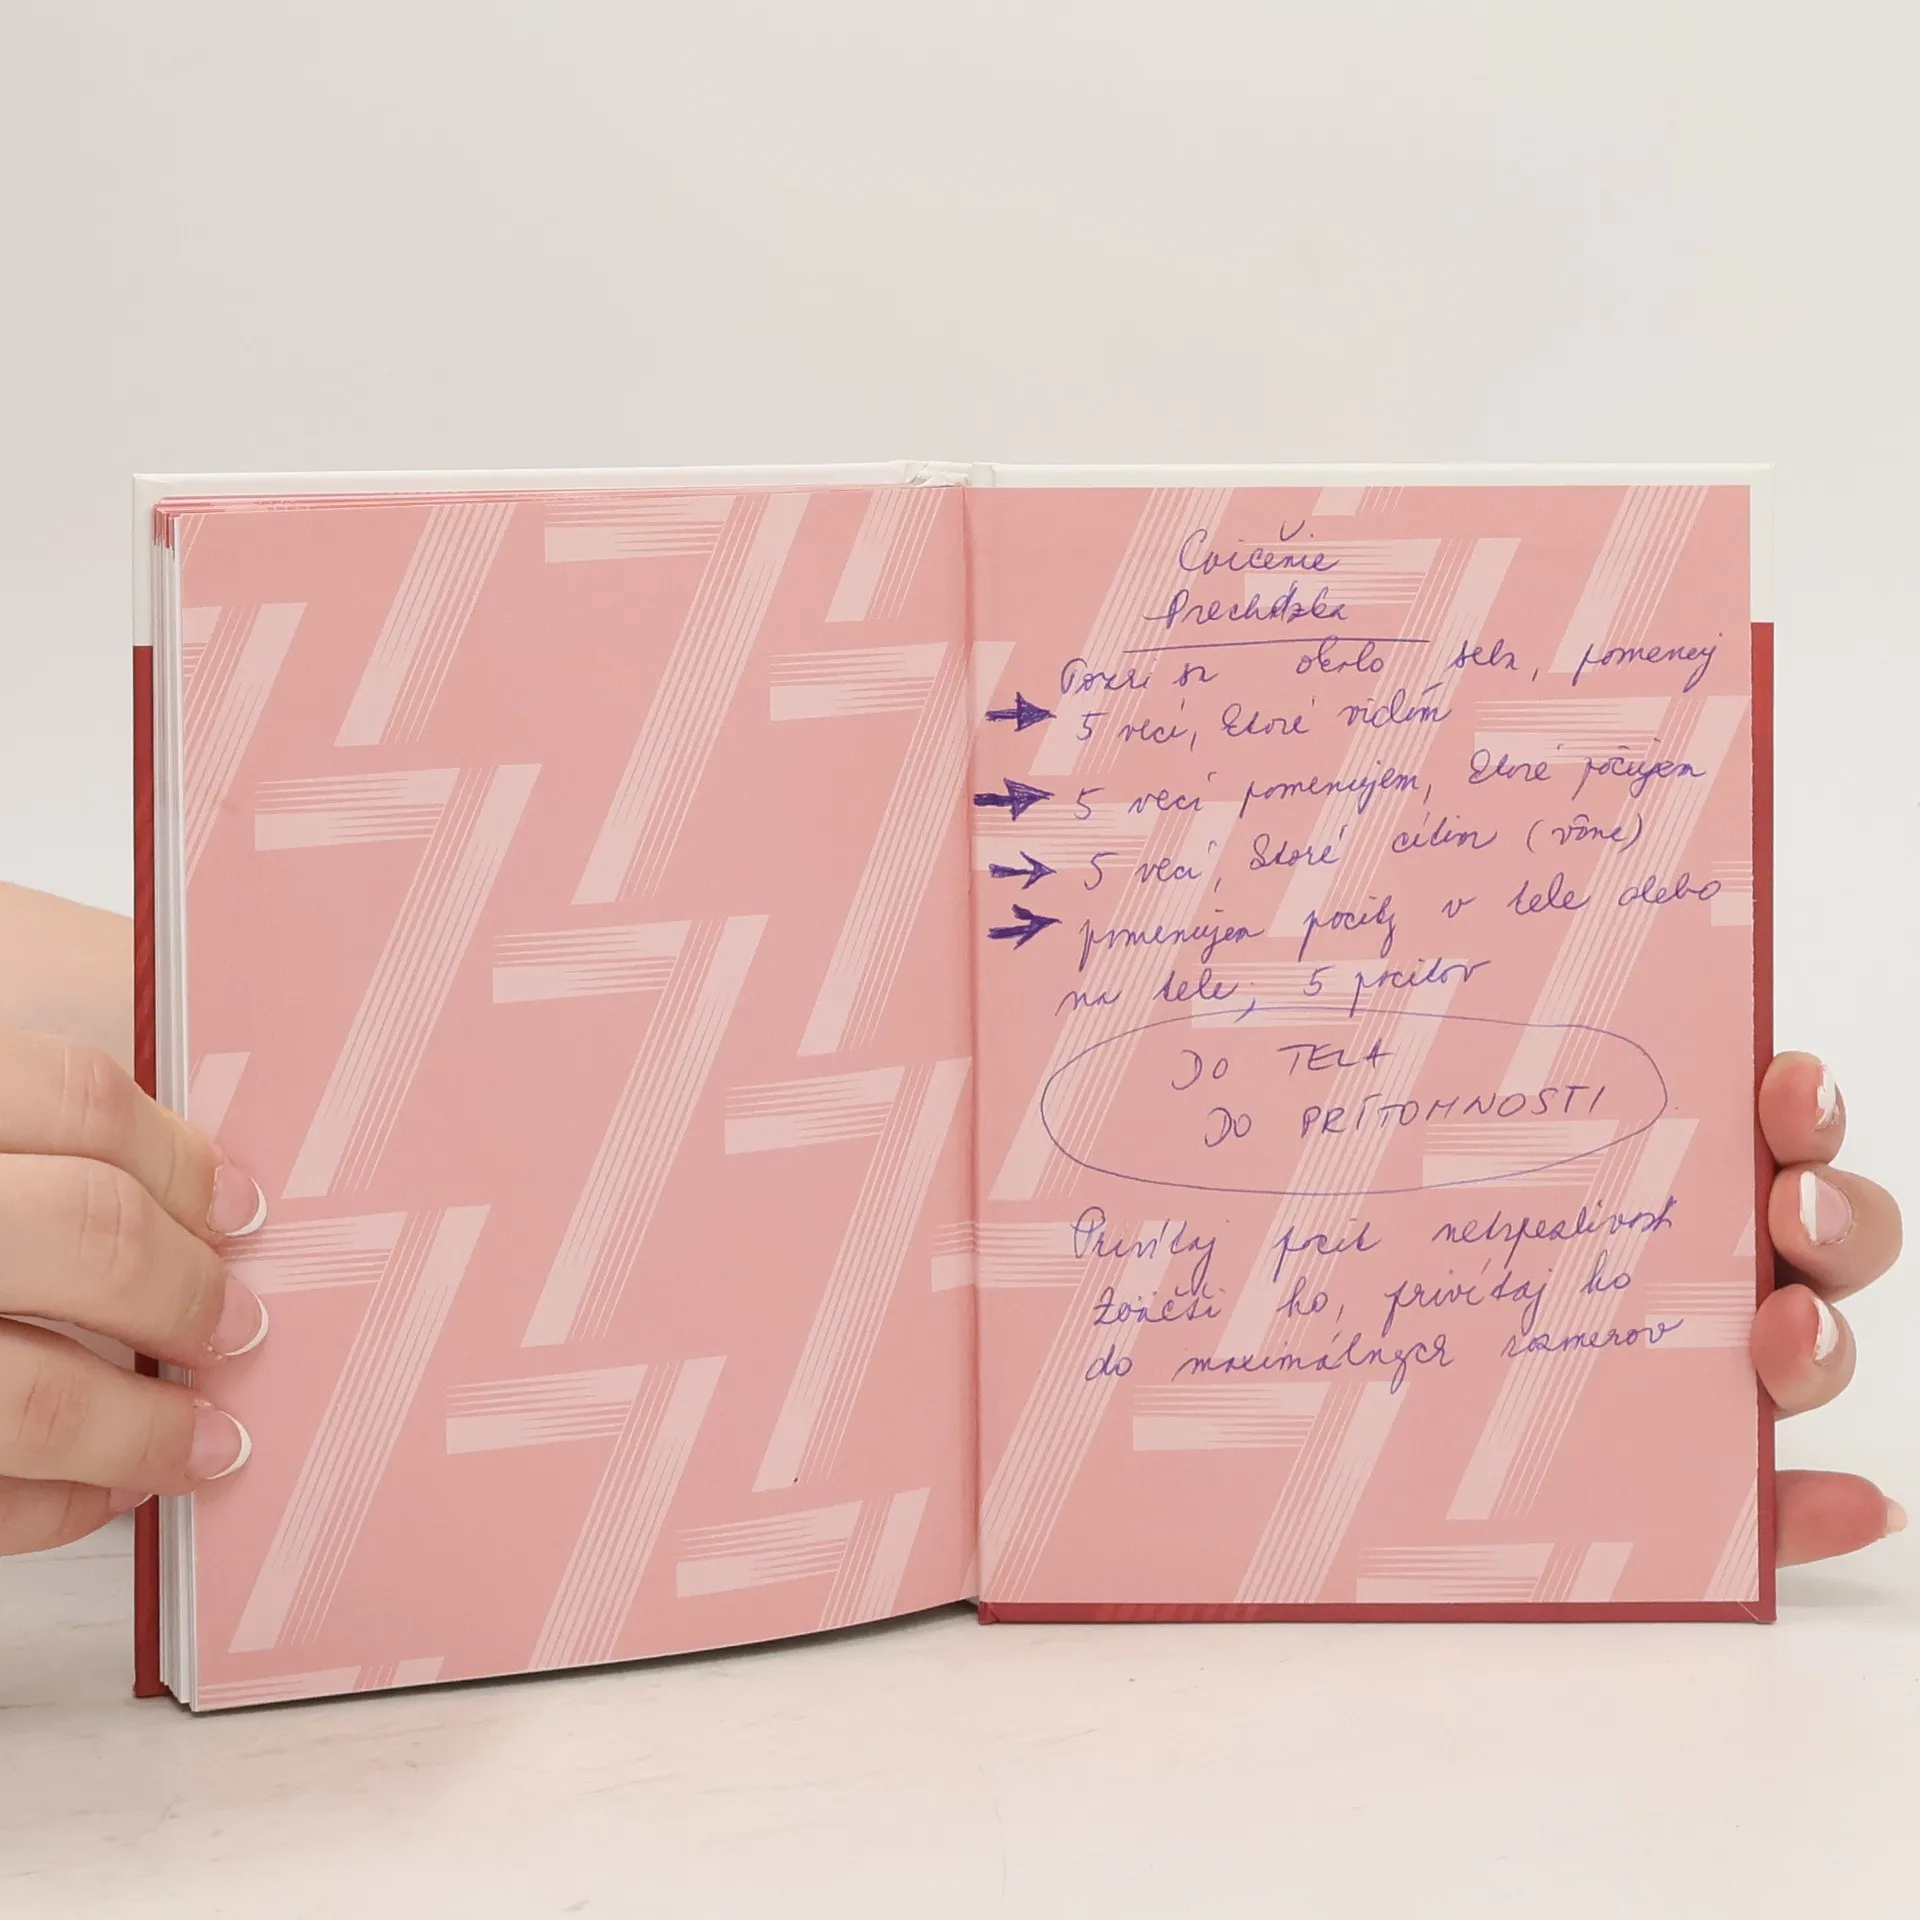 Cvičenie
Prechádzka
Pozri sa okolo seba, pomenuj
5 vecí, ktoré vidím
5 vecí pomenujem, ktoré počujem
5 vecí, ktoré cítim (vône)
pomenujem pocity v tele alebo
na tele; 5 pocitov
DO TELA
DO PRÍTOMNOSTI
Privítaj pocit netrpezlivosť
Zväčši ho, privítaj ho
do maximálnych rozmerov